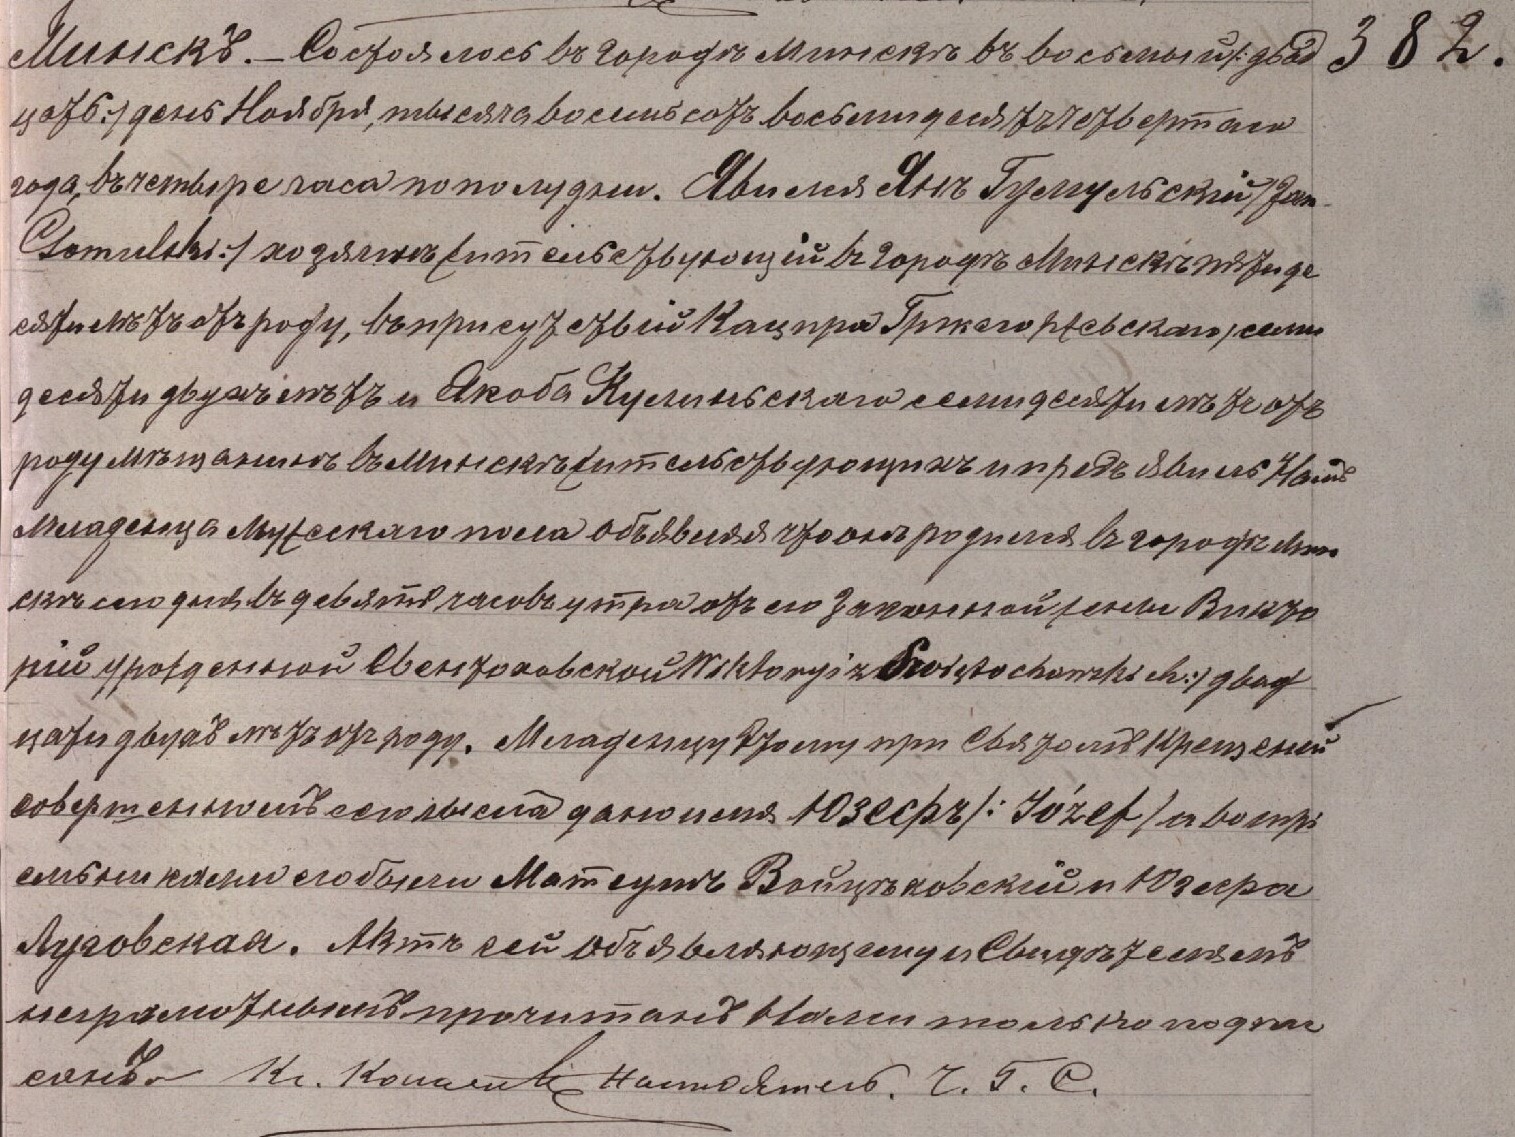 Минскъ. – Состоялось въ городѣ Минскѣ въ восьмый /: двад 382.
цать :/ день Ноября, тысяча восемьсотъ восьмидесятъ четвертаго
года, въ четыре часа по полудни. Явился Янъ Гумульскій /: Jan
Gomulski :/ хозяинъ жительствующій въ городѣ Минскѣ пятиде
сяти лѣтъ отъ роду, въ присутствіи Кацпра Гржегоржевскаго, семи
десяти двухъ лѣтъ и Якоба Кулиньскаго семидесяти лѣтъ отъ
роду мѣщанинъ въ Минскѣ жительствующихъ и предъявилъ Намъ
младенца мужескаго пола объявляя что онъ родился въ городѣ Мин
скѣ сего дня въ девять часовъ утра отъ его законной жены Викто
ріи урожденной Свентоховской Wiktoryi z Świętochowskich :/ двад
цати двухъ лѣтъ отъ роду. Младенцу этому при Святомъ Крещеніи
совершенномъ сего числа дано имя Юзефъ /: Józef / а воспрі
емниками его были Матеушъ Войцѣховскій и Юзефа
Луговская. Актъ сей объявляющему и Свидѣтелямъ
неграмотнымъ прочитанъ Нами только подпи
санъ. Кс. Настоятель. Ч. Г. С.